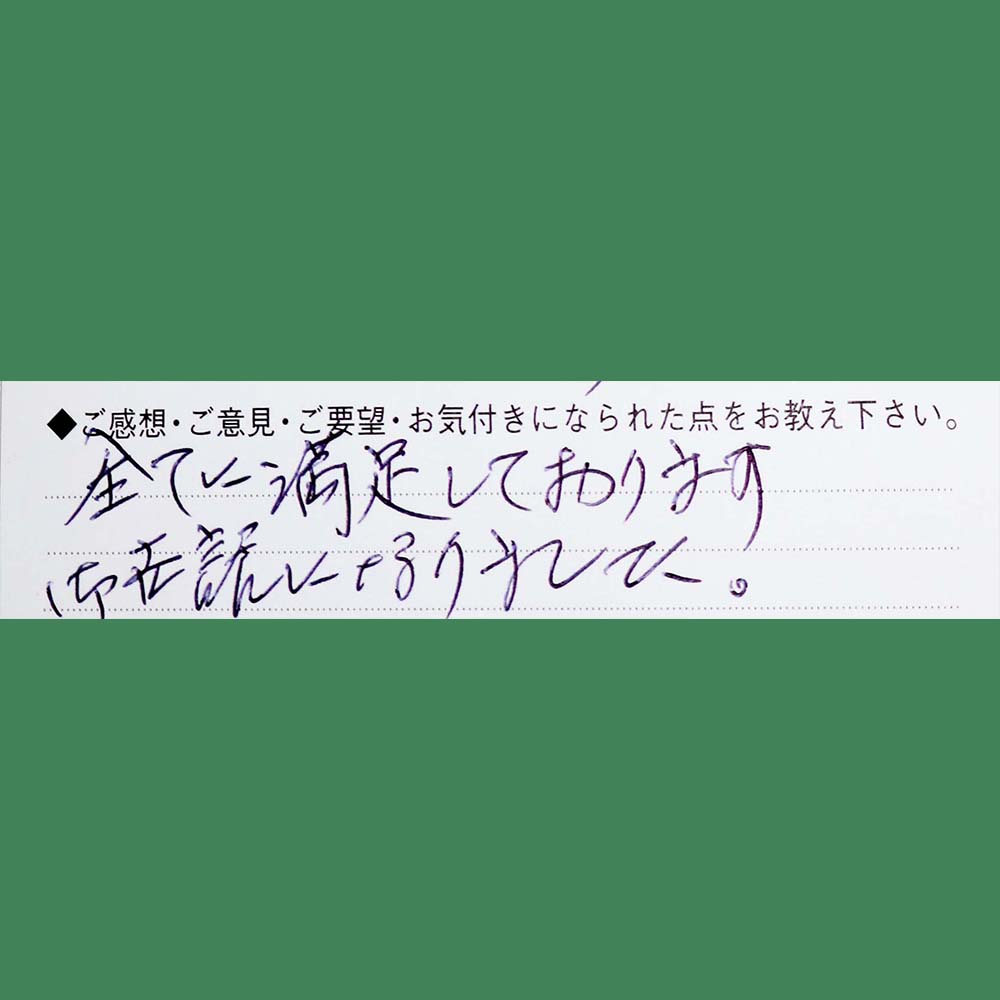 ◆ご感想・ご意見・ご要望・お気付きになられた点をお教え下さい。
全てに満足しております
御世話になりました。